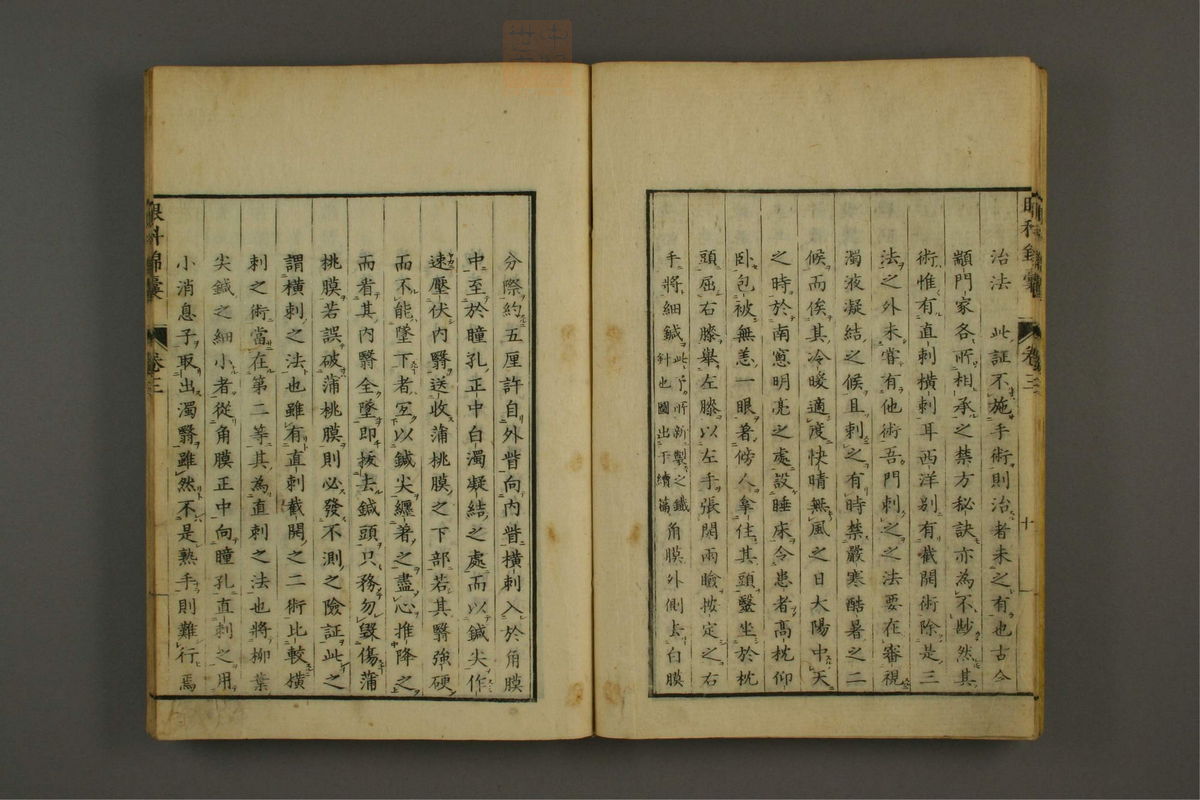 眼科錦囊 卷三 十
治法 此証不施手術則治者未之有也古今
顓門家各所相承之禁方秘訣亦為不尠然其
術惟有直刺橫刺耳西洋別有截開術除是三
法之外未嘗有他術吾門刺之之法要在審視
濁液凝結之候且刺之有時禁嚴寒酷暑之二
候而俟其冷暖適度快晴無風之日太陽中天
之時於南窓明亮之處設睡床令患者高枕仰
臥包被無恙一眼著傍人拿住其頭醫坐於枕
頭屈右膝舉左膝以左手張開兩瞼按定之右
手將細鍼此予所新製之鐵針也圖出于續篇角膜外側去白膜
分際約五厘許自外眥向內眥橫刺入於角膜
中至於瞳孔正中白濁凝結之處而以鍼尖作
速壓伏內翳送收蒲桃膜之下部若其翳強硬
而不能墜下者宜以鍼尖纏著之盡心推降之
而看其內翳全墜即拔去鍼頭只務勿毀傷蒲
桃膜若誤破蒲桃膜則必發不測之險証此之
謂橫刺之法也雖有直刺截開之二術比較橫
刺之術當在第二等其為直刺之法也將柳葉
尖鍼之細小者從角膜正中向瞳孔直刺之用
小消息子取出濁翳雖然不是熟手則難行焉
眼科錦囊 卷三